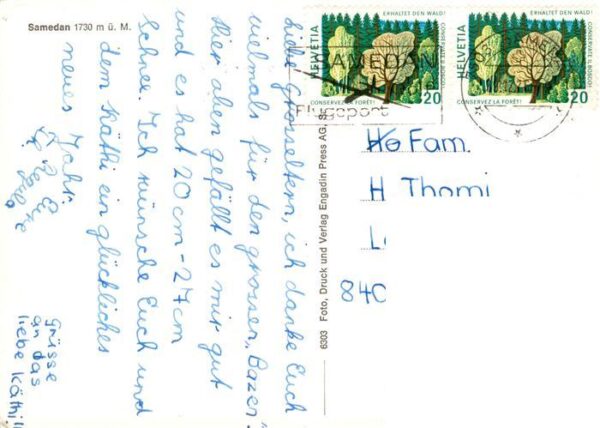 Samedan 1730 m ü. M.
Liebe Grosseltern, ich danke Euch
vielmals für den grossen „Bazen“.
Hier oben gefällt es mir gut
und es hat 20 cm - 27 cm
Schnee. Ich wünsche Euch und
dem Käthi ein glückliches
neues Jahr.
Grüsse
an das
liebe Käthi!!
6303 Foto, Druck und Verlag Engadin Press AG, S
HELVETIA
ERHALTET DEN WALD!
CONSERVATE IL BOSCO!
CONSERVEZ LA FORÊT!
20
HELVETIA
ERHALTET DEN WALD!
CONSERVATE IL BOSCO!
CONSERVEZ LA FORÊT!
20
SAMEDAN
Flugsport
Fam.
H Thomi
840